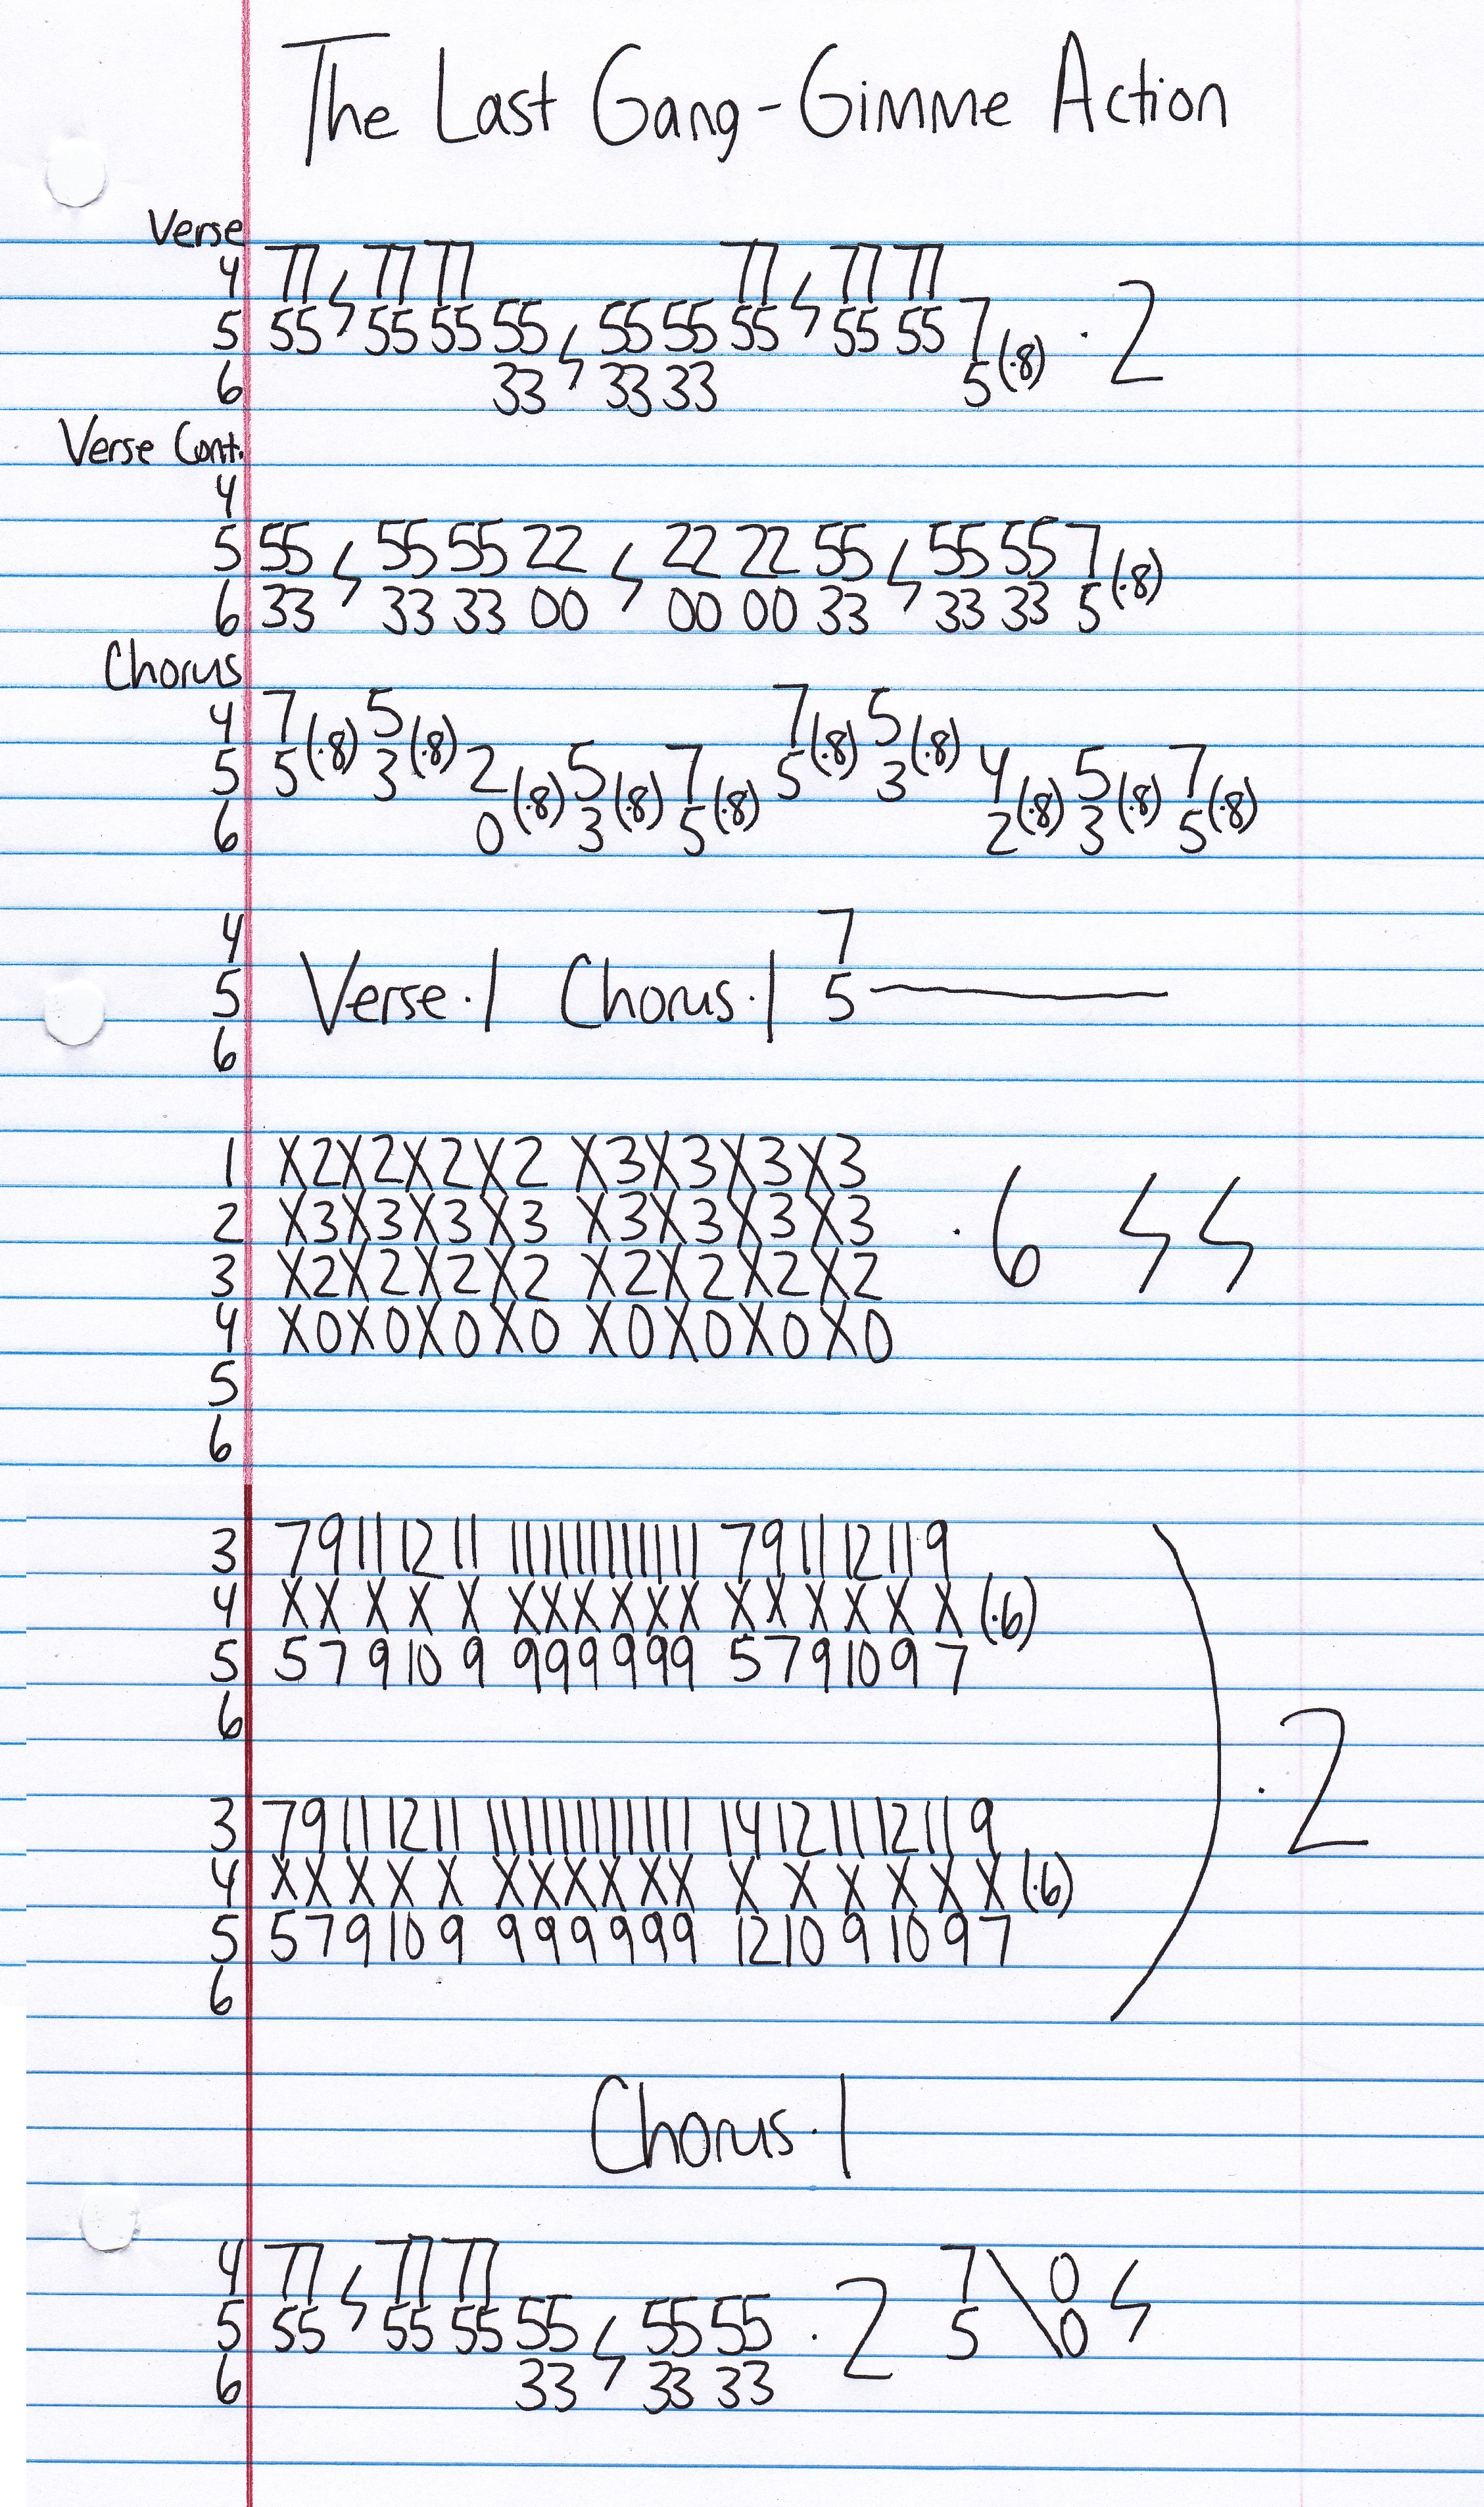 The Last Gang-Gimme Action
Verse
4 77 ϟ 77 77 77 ϟ 77 77
5 55 55 55 55 ϟ 55 55 55 55 55 7 (·8) ·2
6 33 33 33 5
Verse Cont.
4
5 55 ϟ 55 55 22 ϟ 22 22 55 ϟ 55 55 7 (·8)
6 33 33 33 00 00 00 33 33 33 5
Chorus
4 7 (·8) 5 (·8) 7 (·8) 5 (·8)
5 5 3 2 (·8) 5 (·8) 7 (·8) 5 3 4 (·8) 5 (·8) 7 (·8)
6 0 3 5 2 3 5
4 7
5 Verse·1 Chorus·1 5
6
1 X2X2X2X2 X3X3X3X3
2 X3X3X3X3 X3X3X3X3 ·6 ϟ ϟ
3 X2X2X2X2 X2X2X2X2
4 X0X0X0X0 X0X0X0X0
5
6
3 7 9 11 12 11 11 11 11 11 11 11 7 9 11 12 11 9
4 X X X X X X X X X X X X X X X X X (·6)
5 5 7 9 10 9 9 9 9 9 9 9 5 7 9 10 9 7
6
·2
3 7 9 11 12 11 11 11 11 11 11 11 14 12 11 12 11 9
4 X X X X X X X X X X X X X X X X X (·6)
5 5 7 9 10 9 9 9 9 9 9 9 12 10 9 10 9 7
6
Chorus·1
4 77 ϟ 77 77 7 \ 0 ϟ
5 55 55 55 55 ϟ 55 55 ·2 5 0
6 33 33 33